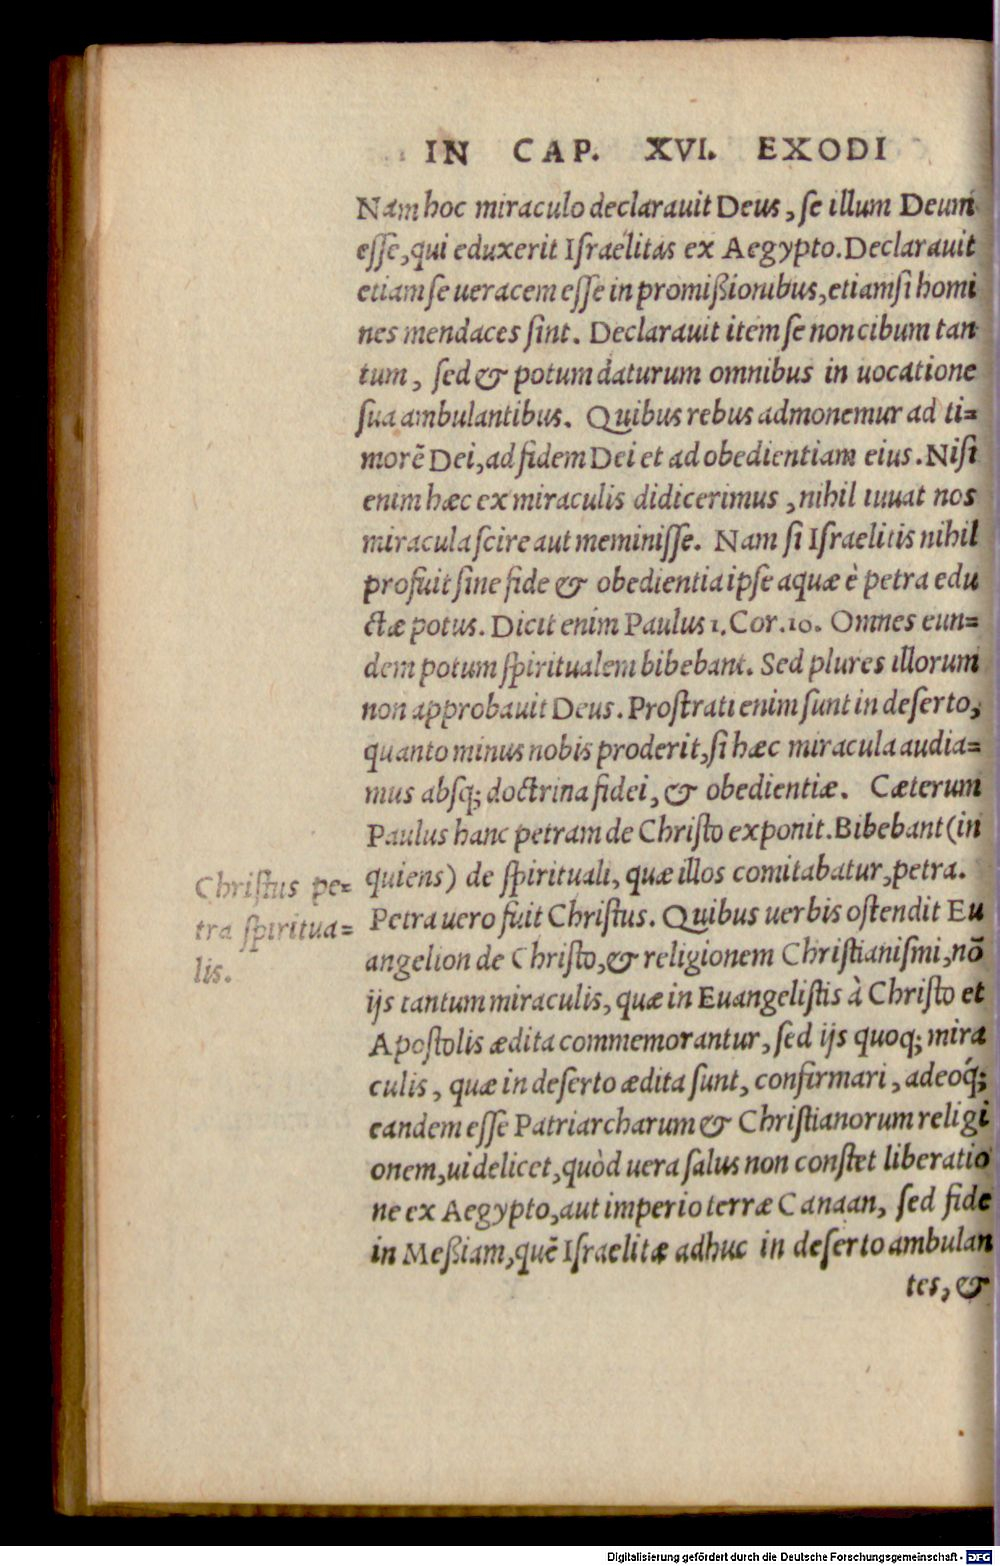 IN CAP. XVI. EXODI
Nam hoc miraculo declarauit Deus, se illum Deum
esse, qui eduxerit Israëlitas ex Aegypto. Declarauit
etiam se ueracem esse in promißionibus, etiamsi homi
nes mendaces sint. Declarauit item se non cibum tan
tum, sed & potum daturum omnibus in uocatione
sua ambulantibus. Quibus rebus admonemur ad ti=
morẽ Dei, ad fidem Dei et ad obedientiam eius. Nisi
enim hæc ex miraculis didicerimus, nihil iuuat nos
miracula scire aut meminisse. Nam si Israelitis nihil
profuit sine fide & obedientia ipse aquæ è petra edu
ctæ potus. Dicit enim Paulus 1. Cor. 10. Omnes eun=
dem potum spiritualem bibebant. Sed plures illorum
non approbauit Deus. Prostrati enim sunt in deserto,
quanto minus nobis proderit, si hæc miracula audia=
mus absq; doctrina fidei, & obedientiæ. Cæterum
Paulus hanc petram de Christo exponit. Bibebant (in
quiens) de spirituali, quæ illos comitabatur, petra.
Petra uero fuit Christus. Quibus uerbis ostendit Eu
angelion de Christo, & religionem Christianismi, nõ
ijs tantum miraculis, quæ in Euangelistis à Christo et
Apostolis ædita commemorantur, sed ijs quoq; mira
culis, quæ in deserto ædita sunt, confirmari, adeóq;
eandem esse Patriarcharum & Christianorum religi
onem, uidelicet, quòd uera salus non constet liberatio
ne ex Aegypto, aut imperio terræ Canaan, sed fide
in Meßiam, quẽ Israelitæ adhuc in deserto ambulan
tes, &
Christus pe=
tra spiritua=
lis.
Digitalisierung gefördert durch die Deutsche Forschungsgemeinschaft - DFG